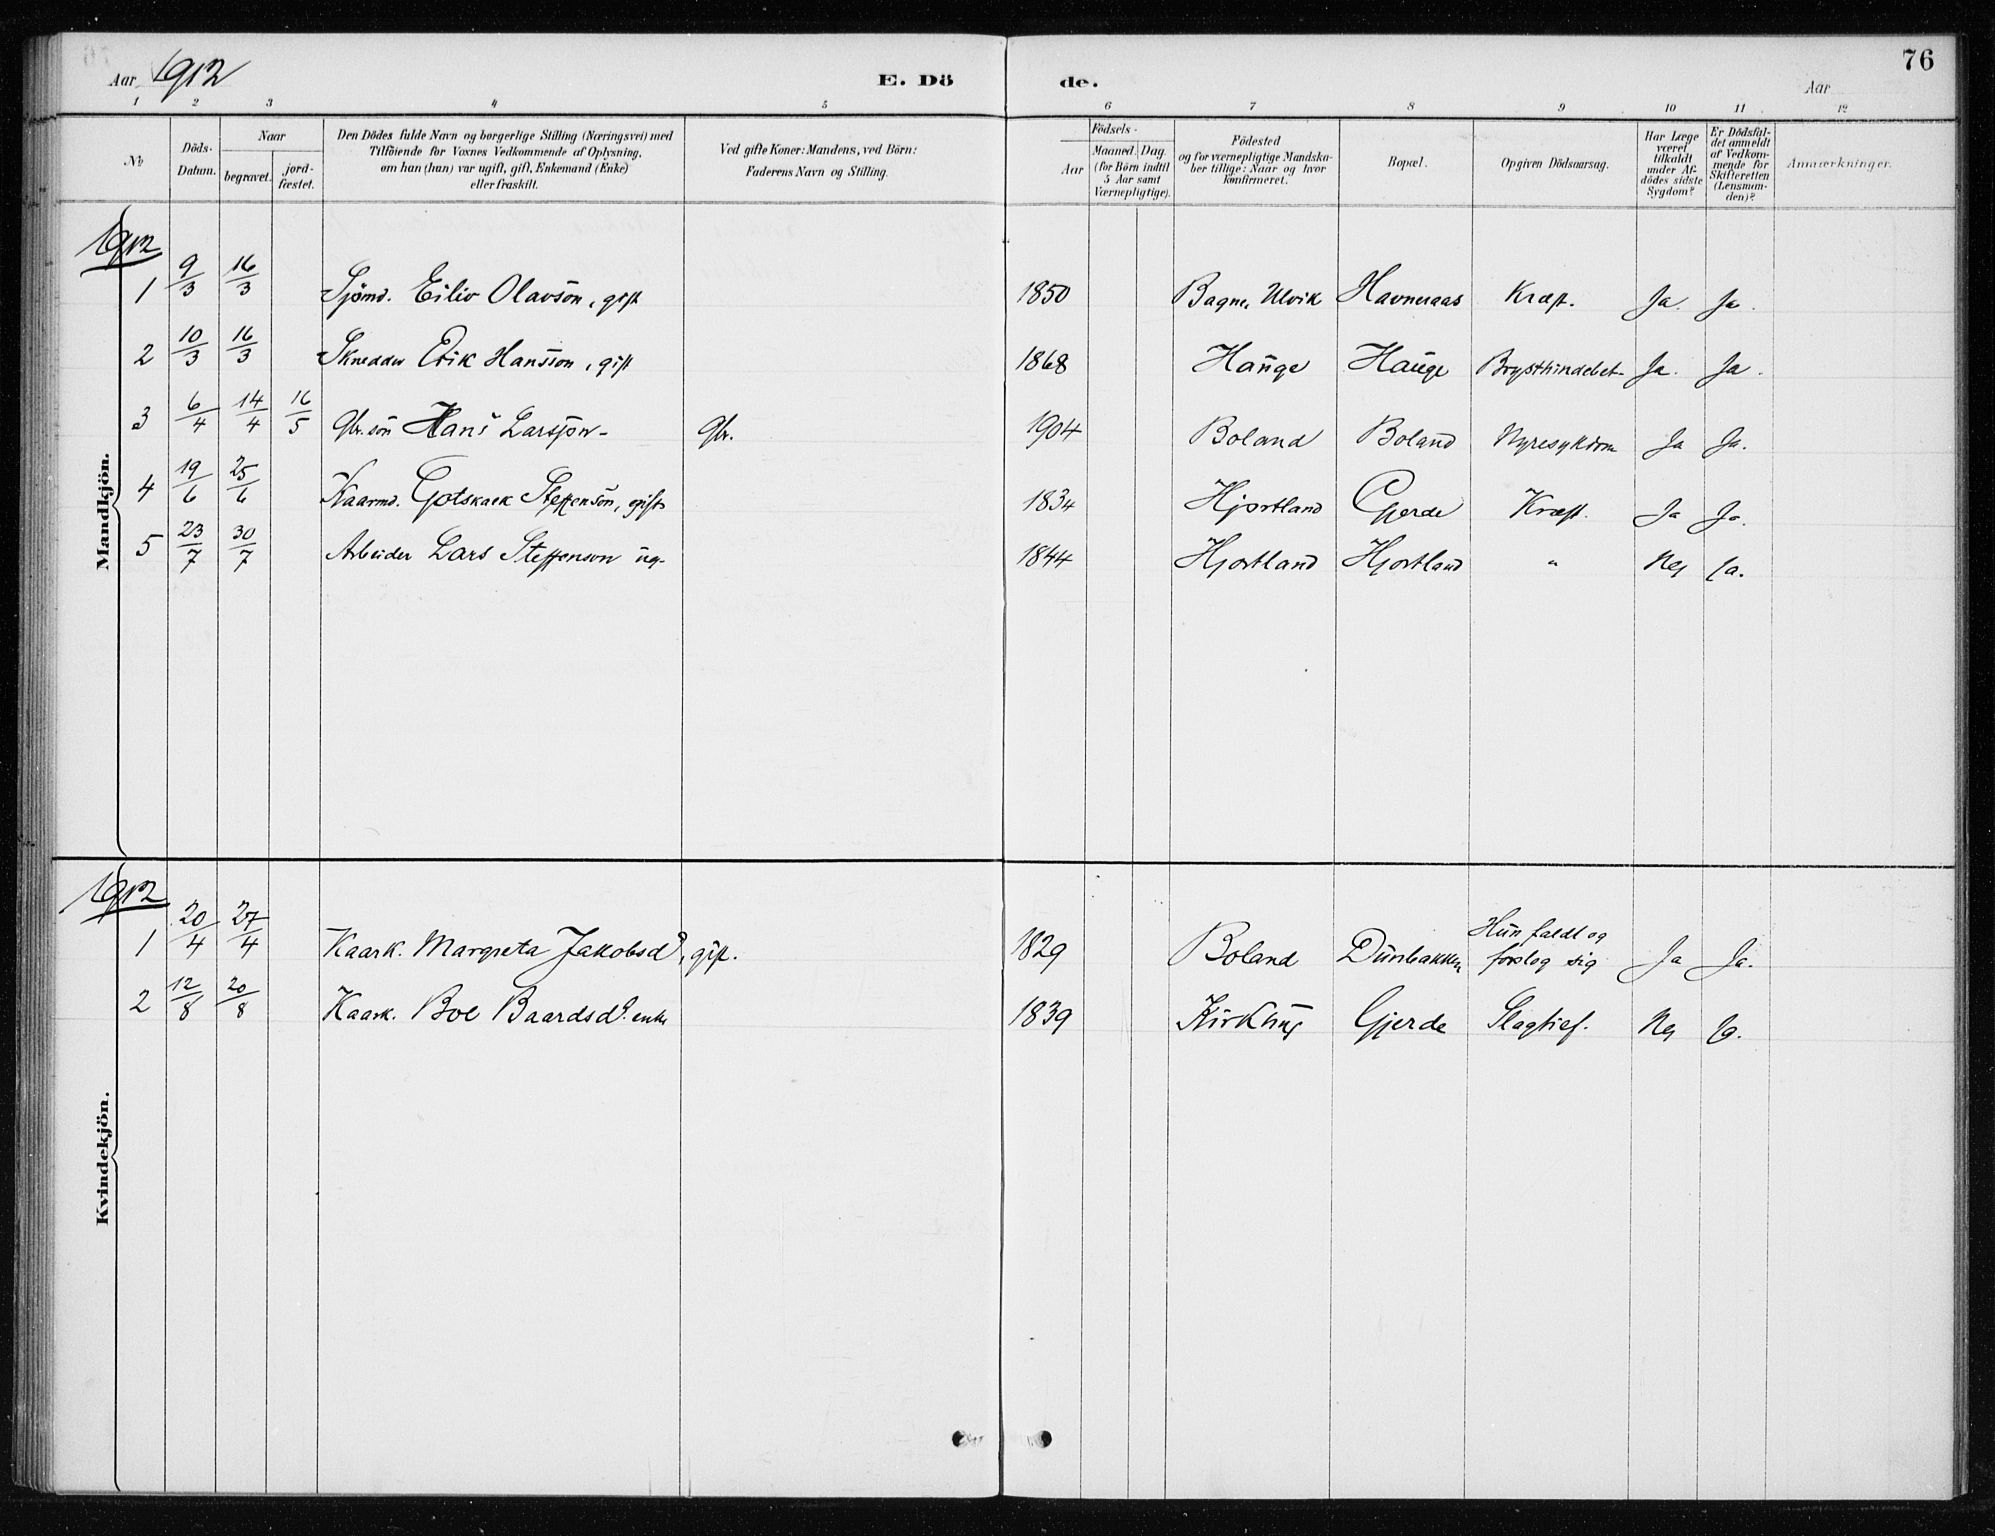 76
Aar 1912
E. Dö
de.
Aar
1 2 3 4 5 6 7 8 9 10 11 12
No
Döds-
Datum.
Naar
begravet.
jord-
fæstet.
Den Dödes fulde Navn og borgerlige Stilling (Næringsvei) med
Tilföiende for Voxnes Vedkommende af Oplysning,
om han (hun) var ugift, gift, Enkemand (Enke)
eller fraskilt.
Ved gifte Koner: Mandens, ved Börn:
Faderens Navn og Stilling.
Födsels-
Aar
Maaned. Dag.
(for Börn indtil
5 Aar samt
Værnepligtige).
Födested
og for værnepligtige Mandska-
ber tillige: Naar og hvor
konfirmeret.
Bopæl.
Opgiven Dödsaarsag.
Har Læge
været
tilkaldt
under Af-
dödes sidste
Sygdom?
Er Dödsfal-
det anmeldt
af Vedkom-
mende for
Skifteretten
(Lensman-
den)?
Anmærkninger.
Mandkjön.
1912
1 9/3 16/3 Sjömd. Eiliv Olavson, gift 1850 Bagne, Ulvik Havneraas Kræft. Ja. Ja.
2 10/3 16/3 Snedder Erik Hansson, gift 1868 Hauge Hauge Brysthindebet- Ja. Ja.
3 6/4 14/4 16/5 Gbr.sön Hans Larsson- Gbr. 1904 Boland Boland Nyresykdom Ja Ja.
4 19/6 25/6 Kaarmd. Gotskalk Steffenson, gift 1834 Hjortland Gjerde Kræft. Ja Ja.
5 23/7 30/7 Arbeider Lars Steffenson ug- 1844 Hjortland Hjortland " Nej Ja.
Kvindekjön.
1912
1 20/4 27/4 Kaark. Margreta Jakobsdr, gift. 1829 Boland Dunbakken Hun faldt og
forslog sig Ja Ja.
2 12/8 20/8 Kaark. Boe Baardsdr. enke 1839 Kirkhus Gjerde Slagtief. Nej Ja.